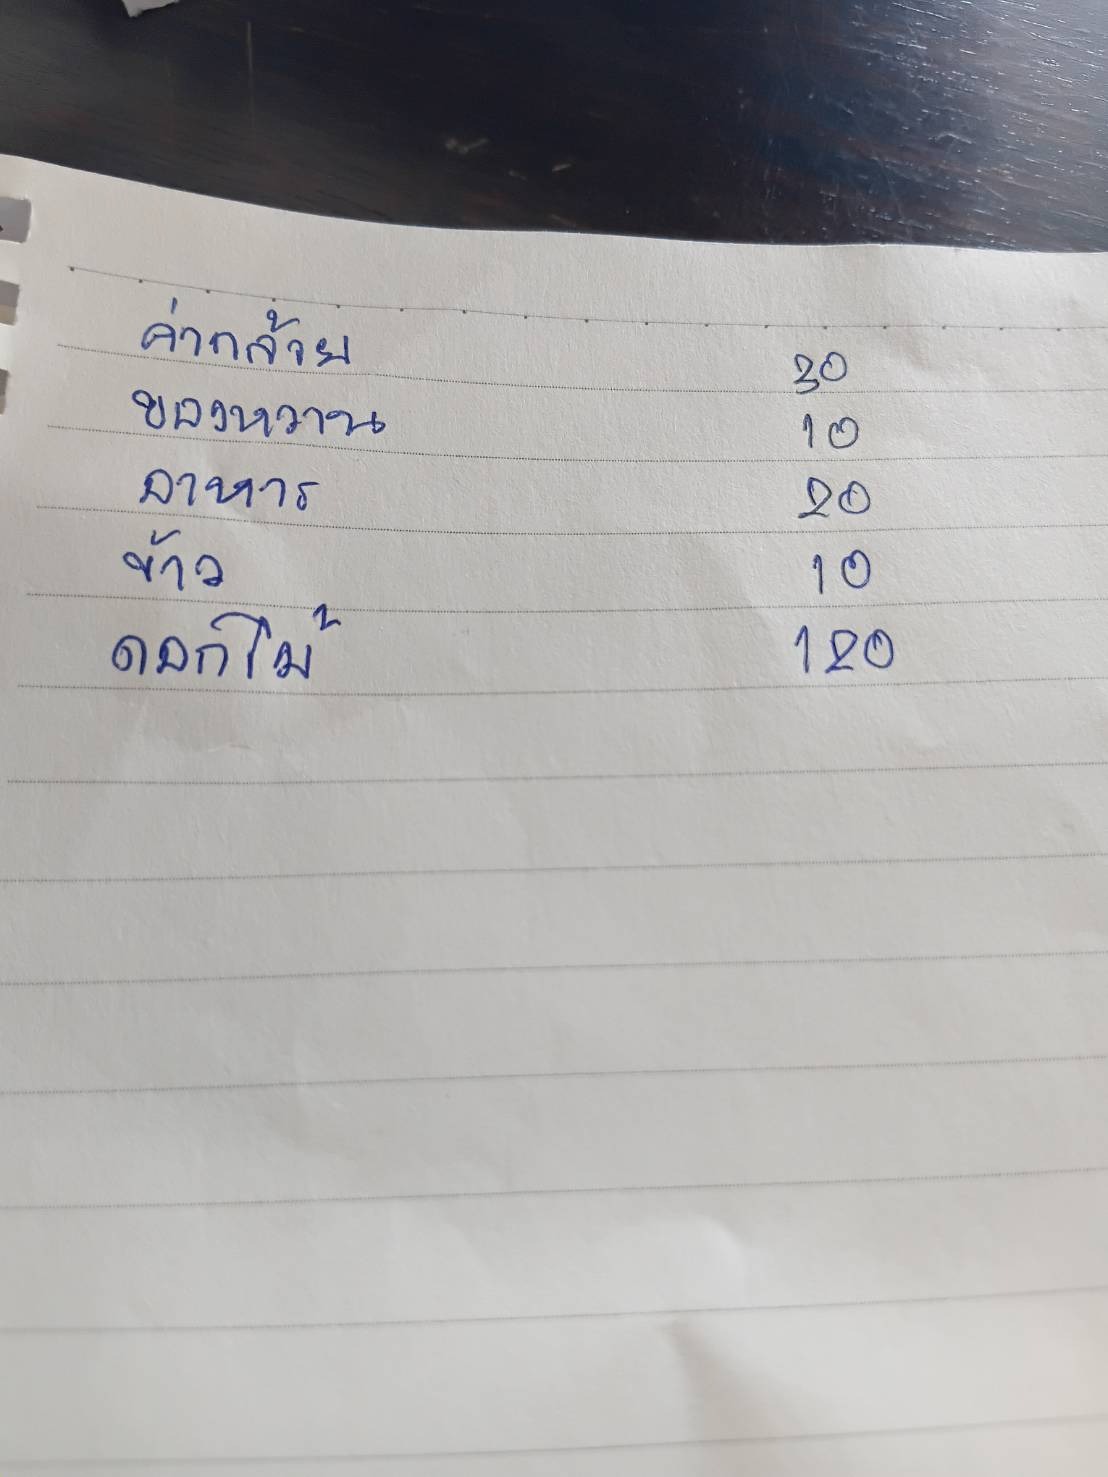 ค่ากล้วย 30
ของหวาน 10
อาหาร 20
ข้าว 10
ดอกไม้ 120